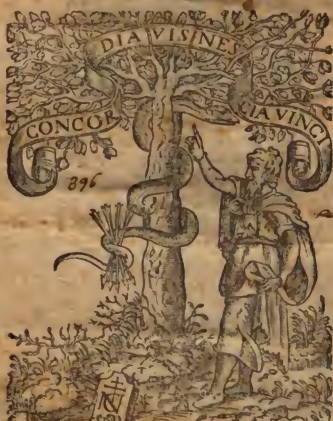 CONCOR DIA VISINES CIA VINCI
896